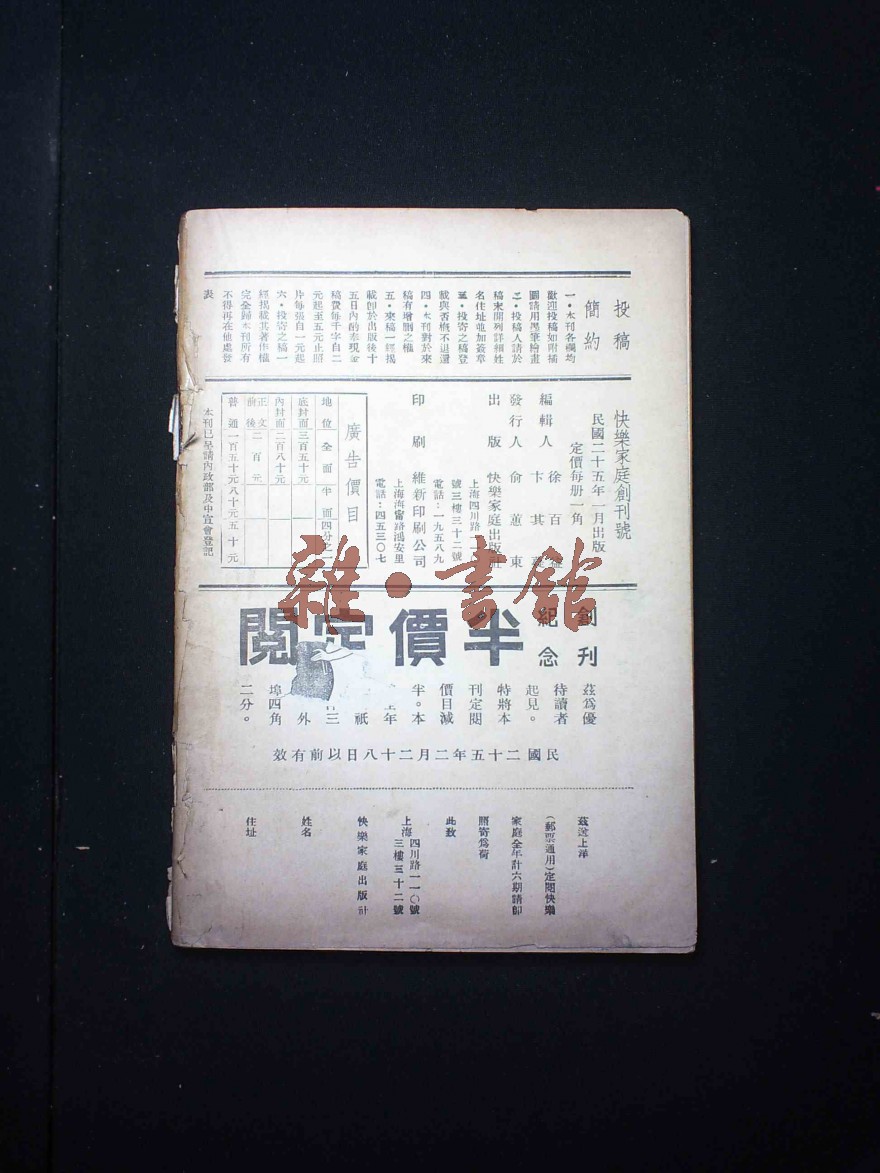 投稿簡約
一・本刊各欄均
歡迎投稿如附插
圖請用墨筆繪畫
二・投稿人請於
稿末開列詳細姓
名住址並加簽章
三・投寄之稿登
載與否概不退還
四・本刊對於來
稿有增刪之權
五・來稿一經揭
載卽於出版後十
五日內酌奉現金
稿費每千字自二
元起至五元止照
片每張自一元起
六・投寄之稿一
經揭載其著作權
完全歸本刊所有
不得再在他處發
表
快樂家庭創刊號
民國二十五年一月出版
定價每册一角
編輯人 徐百
卞其
發行人 俞蕙東
出版 快樂家庭出版社
上海四川路
號三樓三十二號
電話：一九五八九
印刷 維新印刷公司
上海海甯路鴻安里
電話：四五三〇七
廣告價目
地位 全面 半面 四分之一
底封面 三百五十元
內封面 二百八十元
正文前後 二百元
普通 一百五十元 八十元 五十元
本刊已呈請內政部及中宣會登記
創刊紀念
半價定閱
茲爲優
待讀者
起見。
特將本
刊定閱
價目減
半。本
年
祇
三
外
埠四角
二分。
民國二十五年二月二十八日以前有效
茲送上洋
（郵票通用）定閱快樂
家庭全年計六期請卽
照寄爲荷
此致
上海四川路一一〇號
三樓三十二號
快樂家庭出版社
姓名
住址
雜・書館